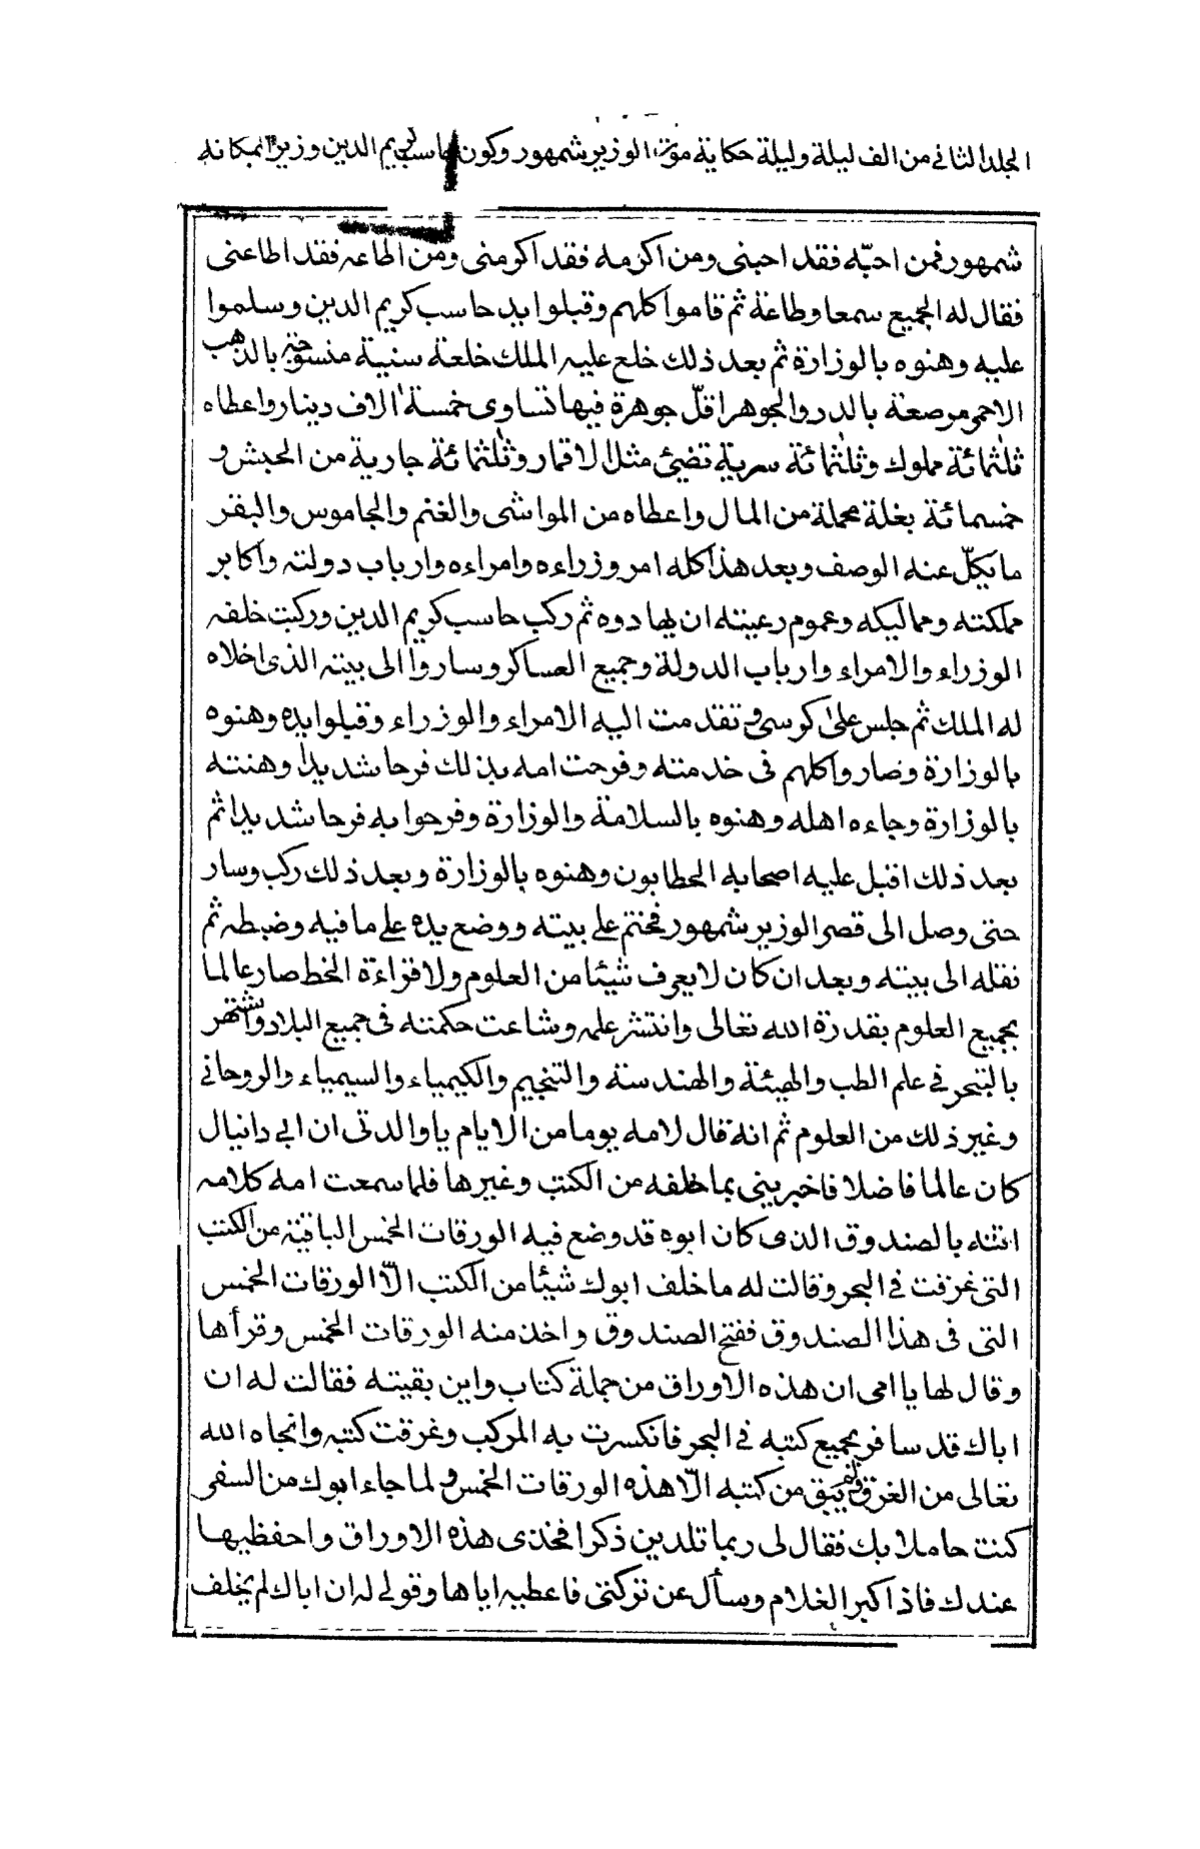 المجلد الثانى من الف ليلة وليلة حكاية موت الوزير شمهور وكون حاسب كريم الدين وزيرا بمكانه
شمهور فمن احبّه فقد احبنى ومن اكرمه فقد اكرمنى ومن اطاعه فقد اطاعنى
فقال له الجميع سمعا وطاعة ثم قاموا كلهم وقبلوا يد حاسب كريم الدين وسلموا
عليه وهنوه بالوزارة ثم بعد ذلك خلع عليه الملك خلعة سنية منسوجة بالذهب
الاحمر مرصعة بالدر والجوهر اقلّ جوهرة فيها تساوى خمسة الاف دينار واعطاه
ثلثمائة مملوك وثلثمائة سرية تضئ مثل الاقمار وثلثمائة جارية من الحبش و
خمسمائة بغلة محملة من المال واعطاه من المواشى والغنم والجاموس والبقر
ما يكلّ عنه الوصف وبعد هذا كله امر وزراءه وامراءه وارباب دولته واكابر
مملكته ومماليكه وعموم رعيته ان يهادوه ثم ركب حاسب كريم الدين وركبت خلفه
الوزراء والامراء وارباب الدولة وجميع العساكر وساروا الى بيته الذى اخلاه
له الملك ثم جلس على كرسى وتقدمت اليه الامراء والوزراء وقبلوا يده وهنوه
بالوزارة وصاروا كلهم فى خدمته وفرحت امه بذلك فرحا شديدا وهنته
بالوزارة وجاءه اهله وهنوه بالسلامة والوزارة وفرحوا به فرحا شديدا ثم
بعد ذلك اقبل عليه اصحابه الحطابون وهنوه بالوزارة وبعد ذلك ركب وسار
حتى وصل الى قصر الوزير شمهور فختم على بيته ووضع يده على ما فيه وضبطه ثم
نقله الى بيته وبعد ان كان لا يعرف شيئا من العلوم ولا قراءة الخط صار عالما
بجميع العلوم بقدرة الله تعالى وانتشر علمه وشاعت حكمته فى جميع البلاد واشتهر
بالتبحر فى علم الطب والهيئة والهندسة والتنجيم والكيمياء والسيمياء والروحانى
وغير ذلك من العلوم ثم انه قال لامه يوما من الايام يا والدتى ان ابى دانيال
كان عالما فاضلا فاخبرينى بما خلفه من الكتب وغيرها فلما سمعت امه كلامه
اتته بالصندوق الذى كان ابوه قد وضع فيه الورقات الخمس الباقية من الكتب
التى غرقت فى البحر وقالت له ما خلف ابوك شيئا من الكتب الّا الورقات الخمس
التى فى هذا الصندوق ففتح الصندوق واخذ منه الورقات الخمس وقرأها
وقال لها يا امى ان هذه الاوراق من جملة كتاب واين بقيته فقالت له ان
اباك قد سافر بجميع كتبه فى البحر فانكسرت به المركب وغرقت كتبه وانجاه الله
تعالى من الغرق ولم يبق من كتبه الّا هذه الورقات الخمس ولما جاء ابوك من السفر
كنت حاملا بك فقال لى ربما تلدين ذكرا فخذى هذه الاوراق واحفظيها
عندك فاذا كبر الغلام وسأل عن تركتى فاعطيه اياها وقولى له ان اباك لم يخلف